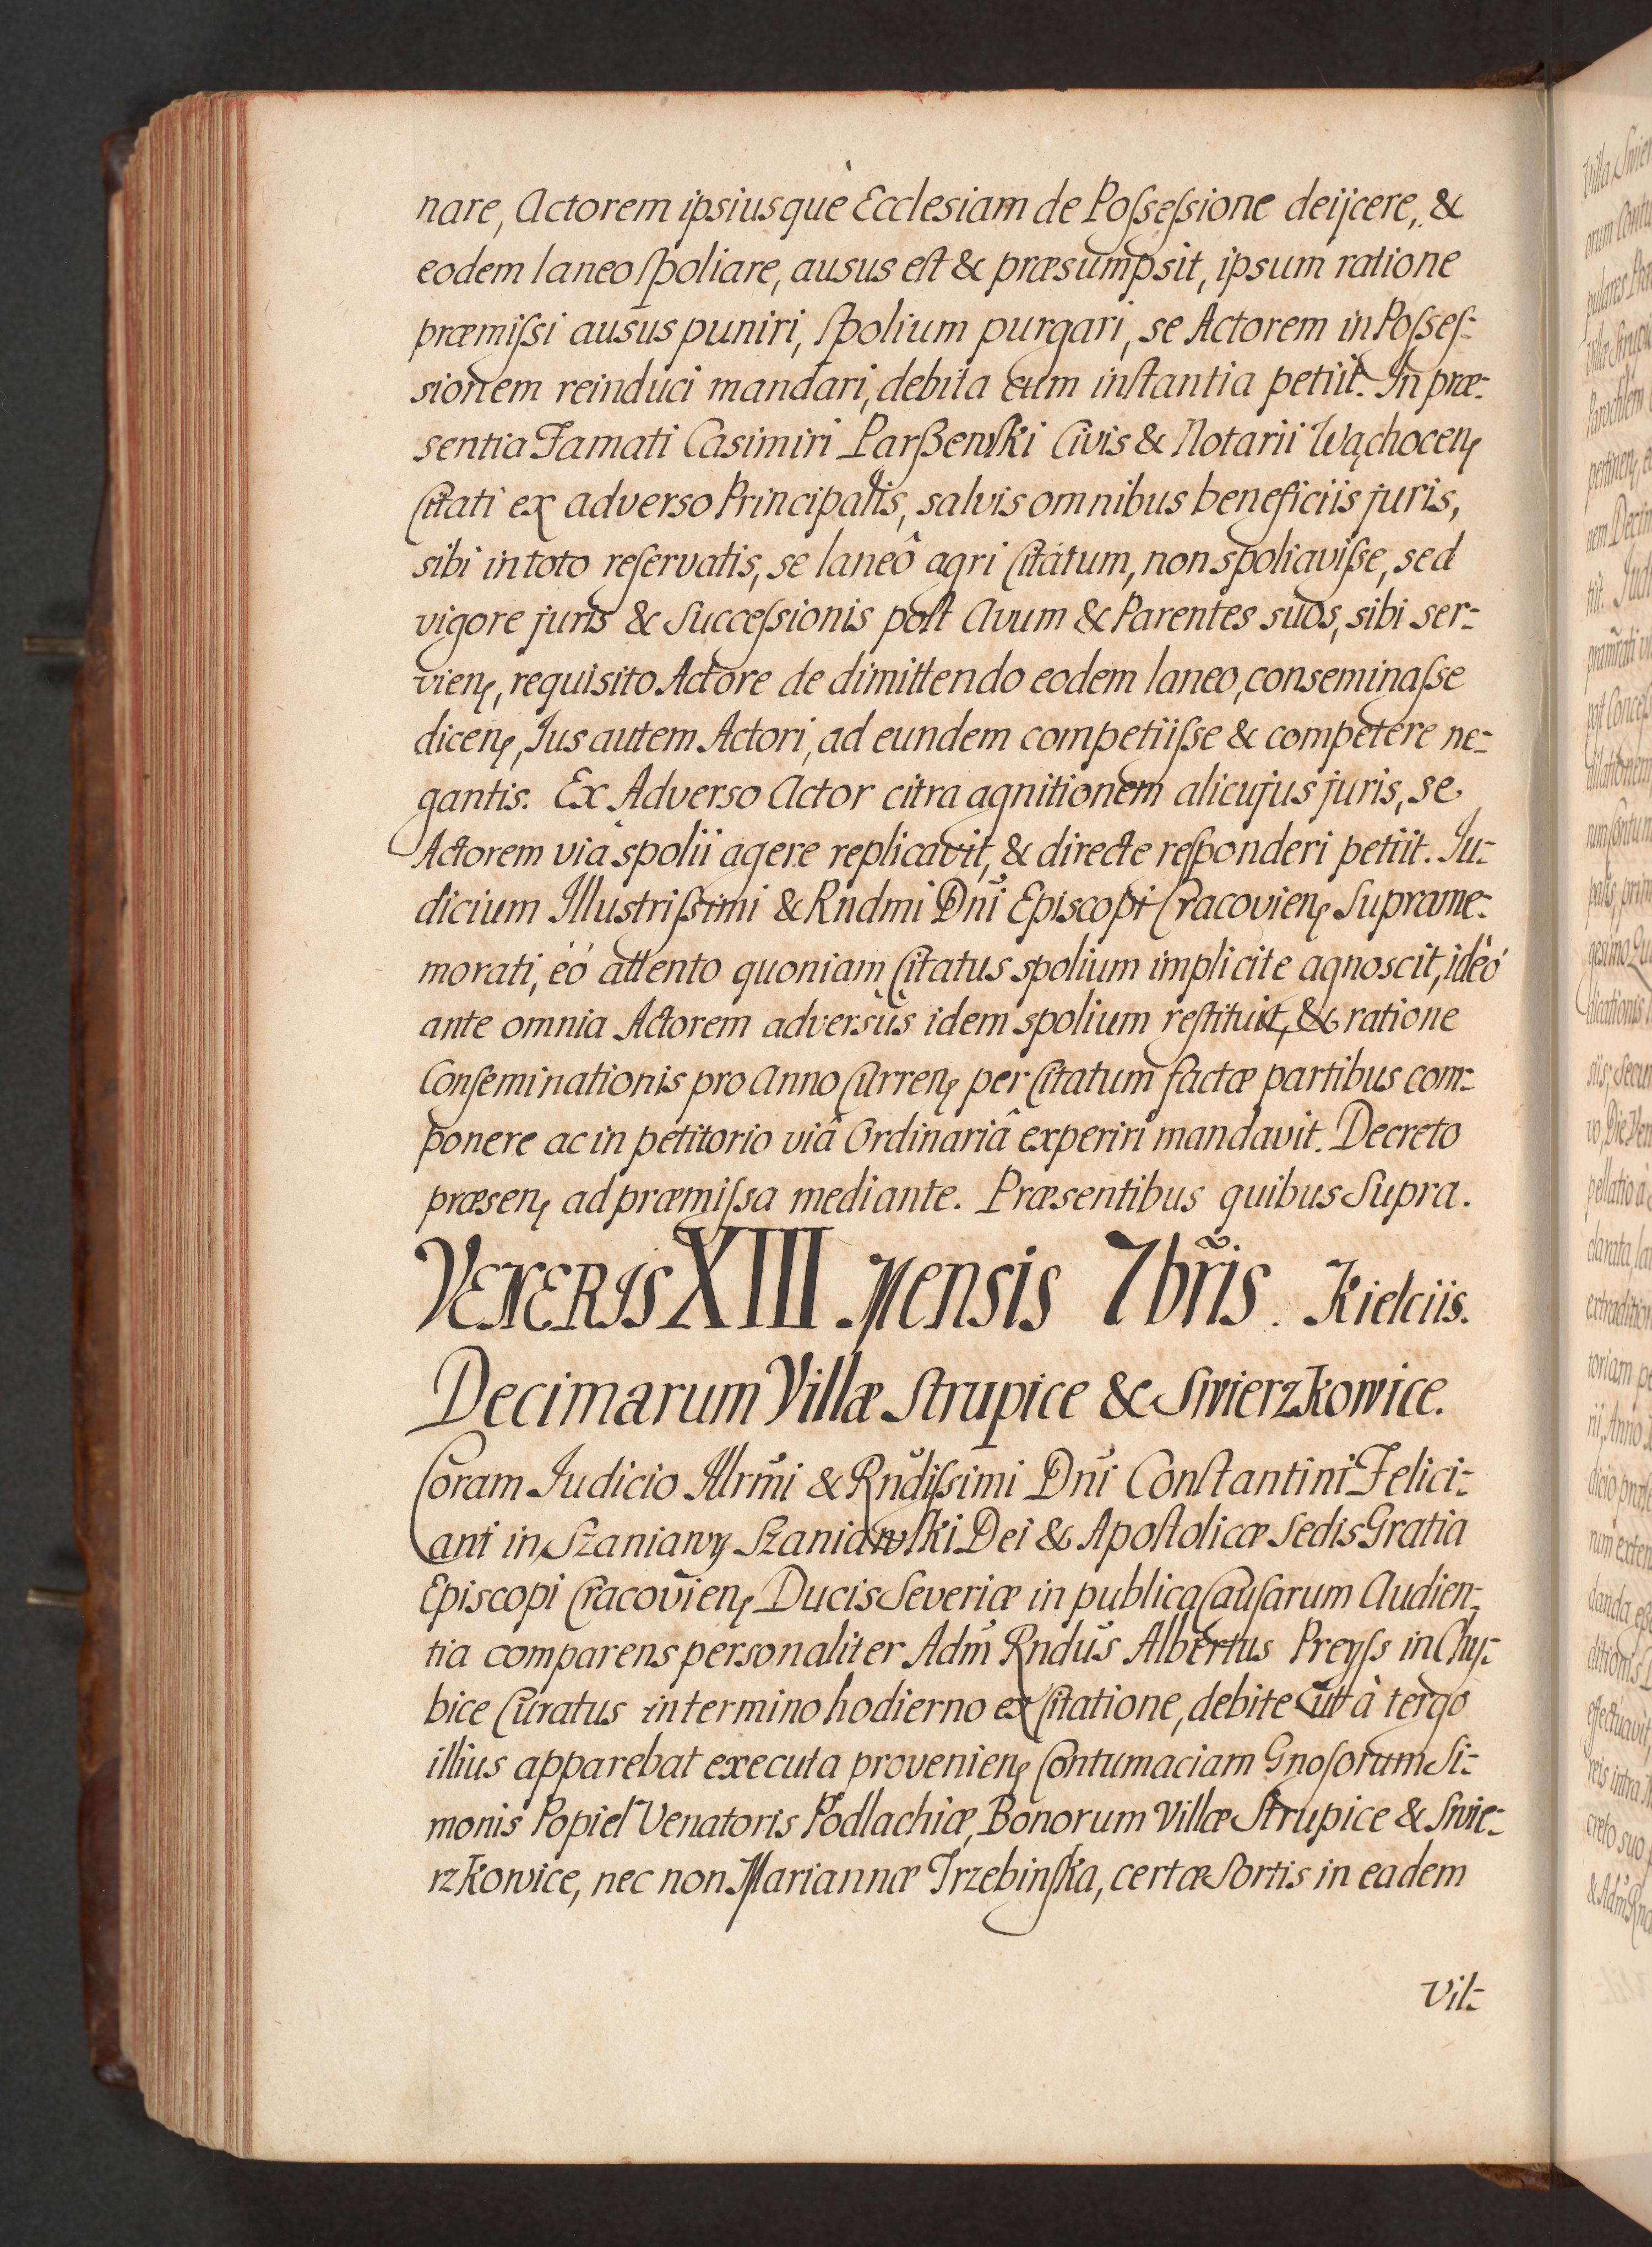 nare, Actorem ipsiusquè Ecclesiam de Poſseſsione deijcere, &
eodem laneo ſpoliare, ausus eſt & præsumpsit, ipsum ratione
præmiſsi ausûs puniri, ſpolium purgari, se Actorem in Poſseſ-
sionem reinduci mandari, debita cum inſtantia petiit. In præ-
sentia Famati Casimiri Parßewſki Civis & Notarii Wąchocenȩ
Citati ex adverso Principalis, salvis omnibus beneficiis juris,
sibi in toto reſervatis, se laneô agri Citatum, non spoliaviſse, sed
vigore juris & Succeſsionis poſt Avum & Parentes suos, sibi ser-
vienȩ, requisito Actore de dimittendo eodem laneo, conseminaſse
dicenȩ, Jus autem Actori, ad eundem competiiſse & competere ne-
gantis. Ex Adverso Actor citra agnitionem alicujus juris, se
Actorem viâ spolii agere replicavit, & directe reſponderi petiit. Ju-
dicium Illustriſsimi & Rndmi Dnĩ Episcopi Cracovienȩ Suprame-
morati, èò attento quoniam Citatus spolium implicite agnoscit, ideò
ante omnia Actorem adversùs idem spolium reſtituit, & ratione
Conſeminationis pro Anno Currenȩ per Citatum factæ partibus com-
ponere ac in petitorio viâ Ordinariâ experiri mandavit. Decreto
præsenȩ ad præmiſsa mediante. Præsentibus quibus Supra.
VENERIS XIII Mensis 7br̃is. Kielciis.
Decimarum Villæ Strupice & Swierzkowice.
Coram Judicio Illrm̃i & Rnd̃iſsimi Dnĩ Conſtantini Felici-
ani in Szaniawy Szaniawſki Dei & Apoſtolicæ Sedis Gratia
Episcopi Cracovienȩ Ducis Severiæ in publica Cauſarum Audien-
tia comparens personaliter Adm̃ Rndũs Albertus Preyſs in Chy-
bice Curatus in termino hodierno ex Citatione, debite utt à tergo
illius apparebat executa provenienȩ Contumaciam Gnoſorum Si-
monis Popiel Venatoris Podlachiæ, Bonorum Villæ Strupice & Swie-
rzkowice, nec non Mariannæ Trzebinſka, certæ Sortis in eadem
Vil-